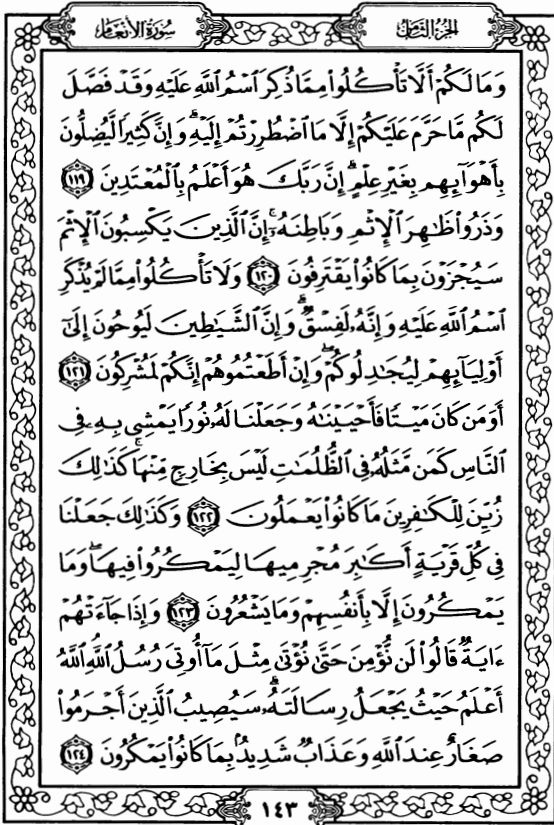 الجزء الثامن
سورة الأنعام
وَمَا لَكُمْ أَلَّا تَأْكُلُوا۟ مِمَّا ذُكِرَ ٱسْمُ ٱللَّهِ عَلَيْهِ وَقَدْ فَصَّلَ
لَكُم مَّا حَرَّمَ عَلَيْكُمْ إِلَّا مَا ٱضْطُرِرْتُمْ إِلَيْهِ ۗ وَإِنَّ كَثِيرًا لَّيُضِلُّونَ
بِأَهْوَآئِهِم بِغَيْرِ عِلْمٍ ۗ إِنَّ رَبَّكَ هُوَ أَعْلَمُ بِٱلْمُعْتَدِينَ ١١٩
وَذَرُوا۟ ظَـٰهِرَ ٱلْإِثْمِ وَبَاطِنَهُۥٓ ۚ إِنَّ ٱلَّذِينَ يَكْسِبُونَ ٱلْإِثْمَ
سَيُجْزَوْنَ بِمَا كَانُوا۟ يَقْتَرِفُونَ ١٢٠ وَلَا تَأْكُلُوا۟ مِمَّا لَمْ يُذْكَرِ
ٱسْمُ ٱللَّهِ عَلَيْهِ وَإِنَّهُۥ لَفِسْقٌ ۗ وَإِنَّ ٱلشَّيَـٰطِينَ لَيُوحُونَ إِلَىٰٓ
أَوْلِيَآئِهِمْ لِيُجَـٰدِلُوكُمْ ۖ وَإِنْ أَطَعْتُمُوهُمْ إِنَّكُمْ لَمُشْرِكُونَ ١٢١
أَوَمَن كَانَ مَيْتًا فَأَحْيَيْنَـٰهُ وَجَعَلْنَا لَهُۥ نُورًا يَمْشِى بِهِۦ فِى
ٱلنَّاسِ كَمَن مَّثَلُهُۥ فِى ٱلظُّلُمَـٰتِ لَيْسَ بِخَارِجٍ مِّنْهَا ۚ كَذَٰلِكَ
زُيِّنَ لِلْكَـٰفِرِينَ مَا كَانُوا۟ يَعْمَلُونَ ١٢٢ وَكَذَٰلِكَ جَعَلْنَا
فِى كُلِّ قَرْيَةٍ أَكَـٰبِرَ مُجْرِمِيهَا لِيَمْكُرُوا۟ فِيهَا ۖ وَمَا
يَمْكُرُونَ إِلَّا بِأَنفُسِهِمْ وَمَا يَشْعُرُونَ ١٢٣ وَإِذَا جَآءَتْهُمْ
ءَايَةٌ قَالُوا۟ لَن نُّؤْمِنَ حَتَّىٰ نُؤْتَىٰ مِثْلَ مَآ أُوتِىَ رُسُلُ ٱللَّهِ ۘ ٱللَّهُ
أَعْلَمُ حَيْثُ يَجْعَلُ رِسَالَتَهُۥ ۗ سَيُصِيبُ ٱلَّذِينَ أَجْرَمُوا۟
صَغَارٌ عِندَ ٱللَّهِ وَعَذَابٌ شَدِيدٌۢ بِمَا كَانُوا۟ يَمْكُرُونَ ١٢٤
١٤٣